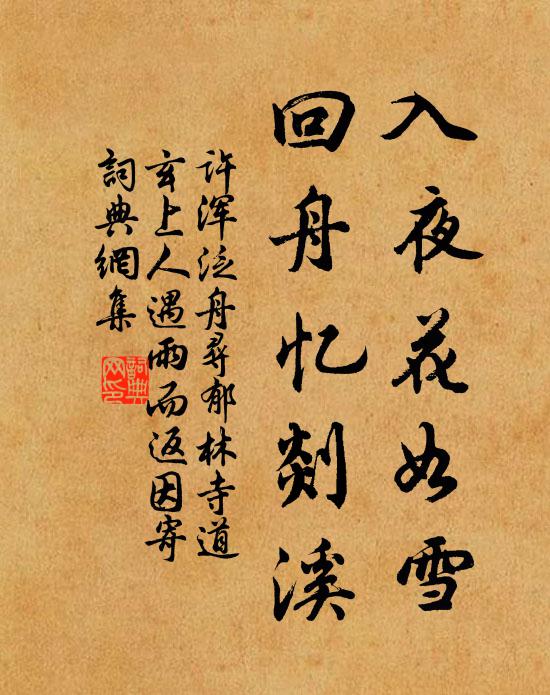 入夜花如雪
回舟忆剡溪
许浑泛舟寻郁林寺道
玄上人遇雨而返因寄
詞典網集
詞典網印